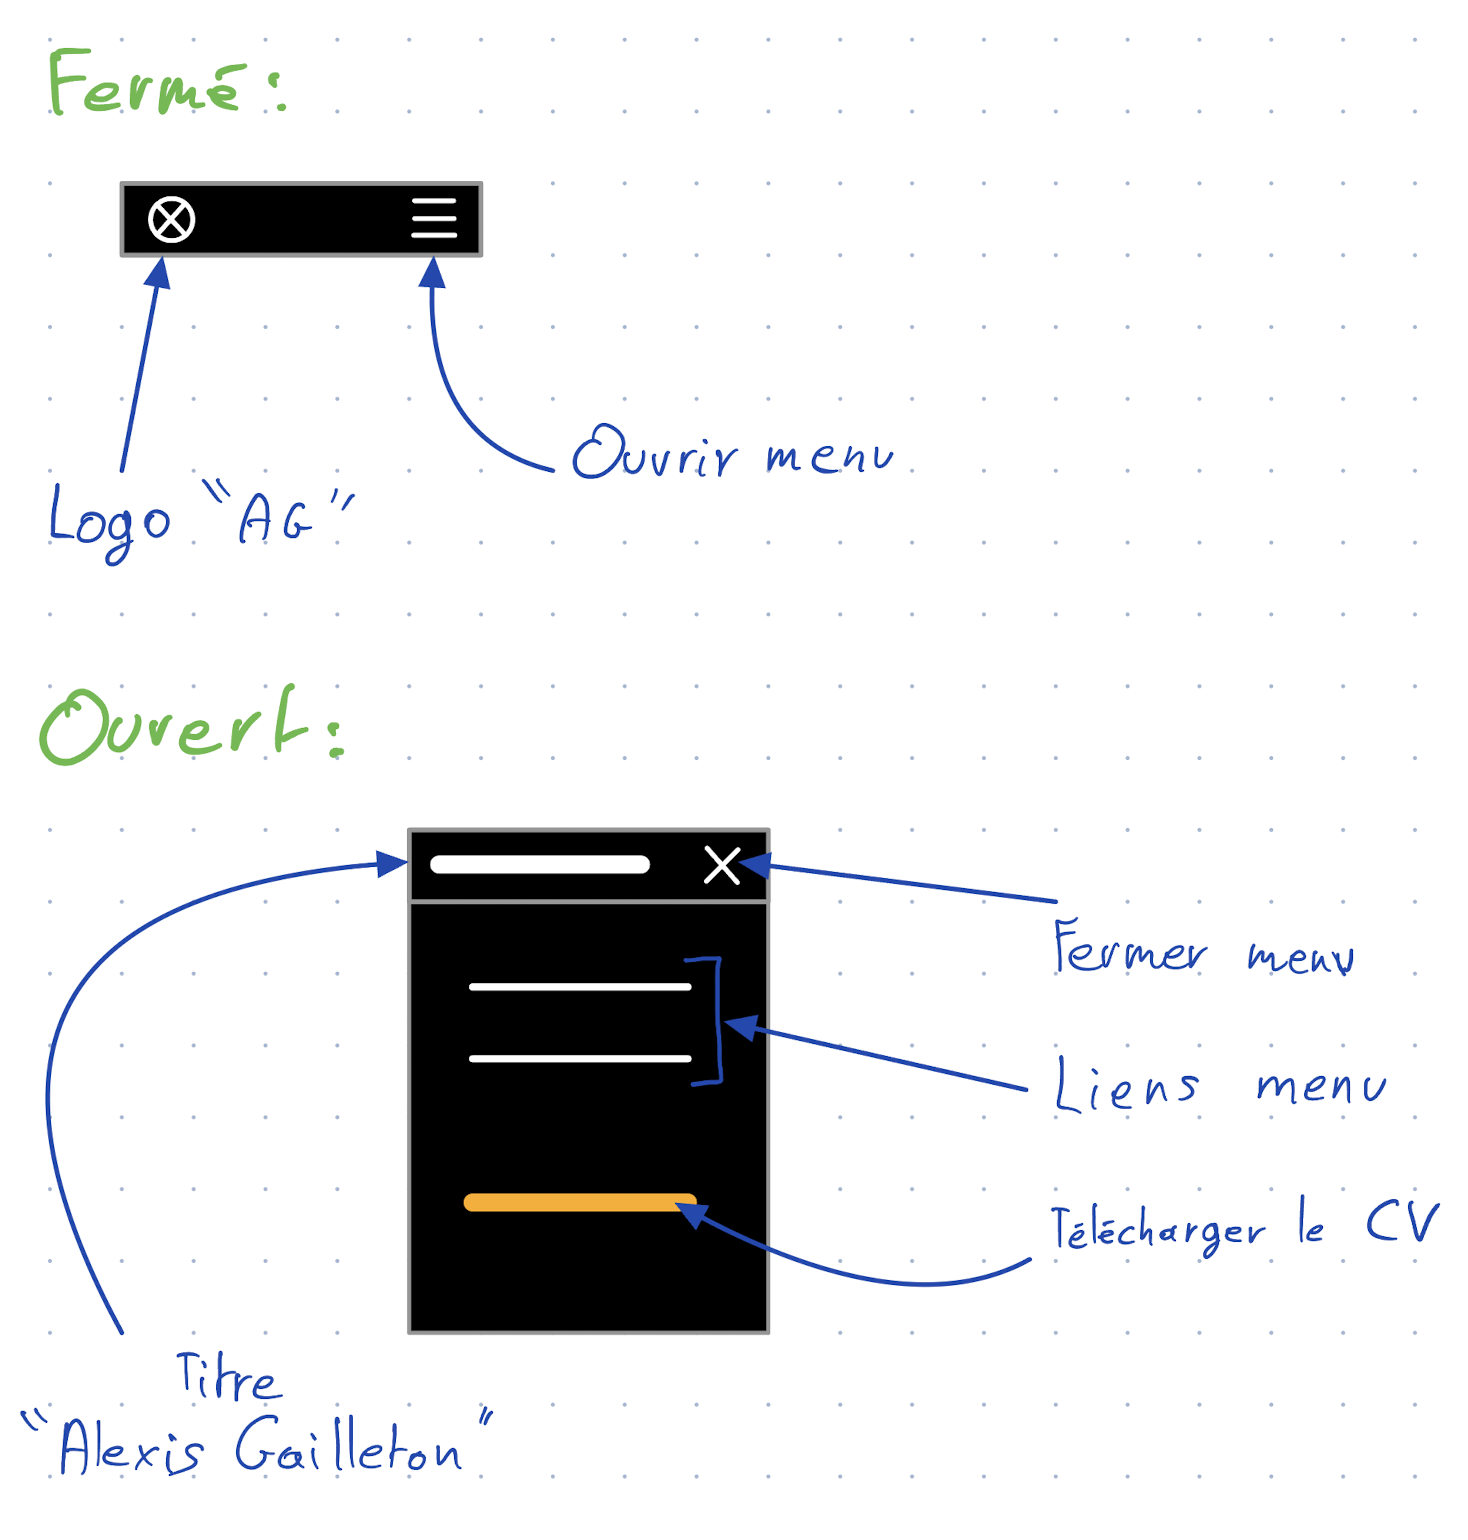 Fermé:
Ouvrir menu
Logo "AG"
Ouvert:
Fermer menu
Liens menu
Télécharger le CV
Titre
"Alexis Gailleton"